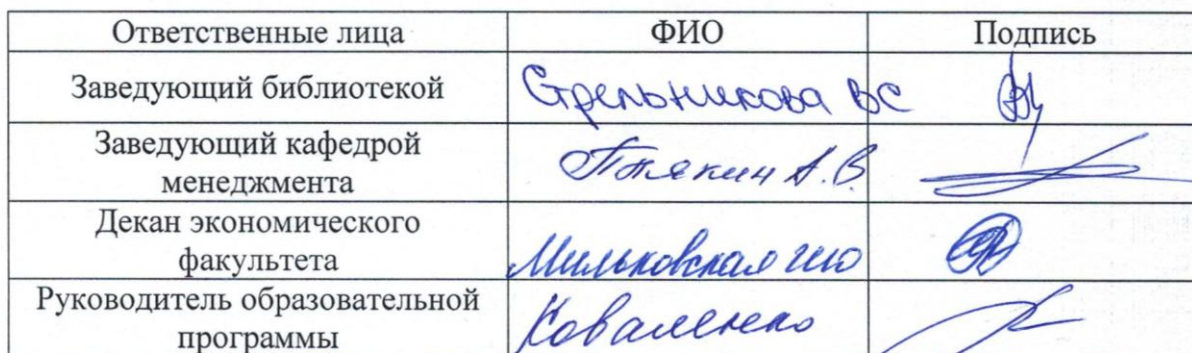 Ответственные лица ФИО Подпись
Заведующий библиотекой Стрельникова ВС
Заведующий кафедрой
менеджмента А.В.
Декан экономического
факультета Мильковская
Руководитель образовательной
программы Коваленко